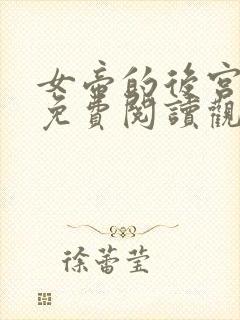 女帝的後宮
免費閱讀觀
徐蕾莹